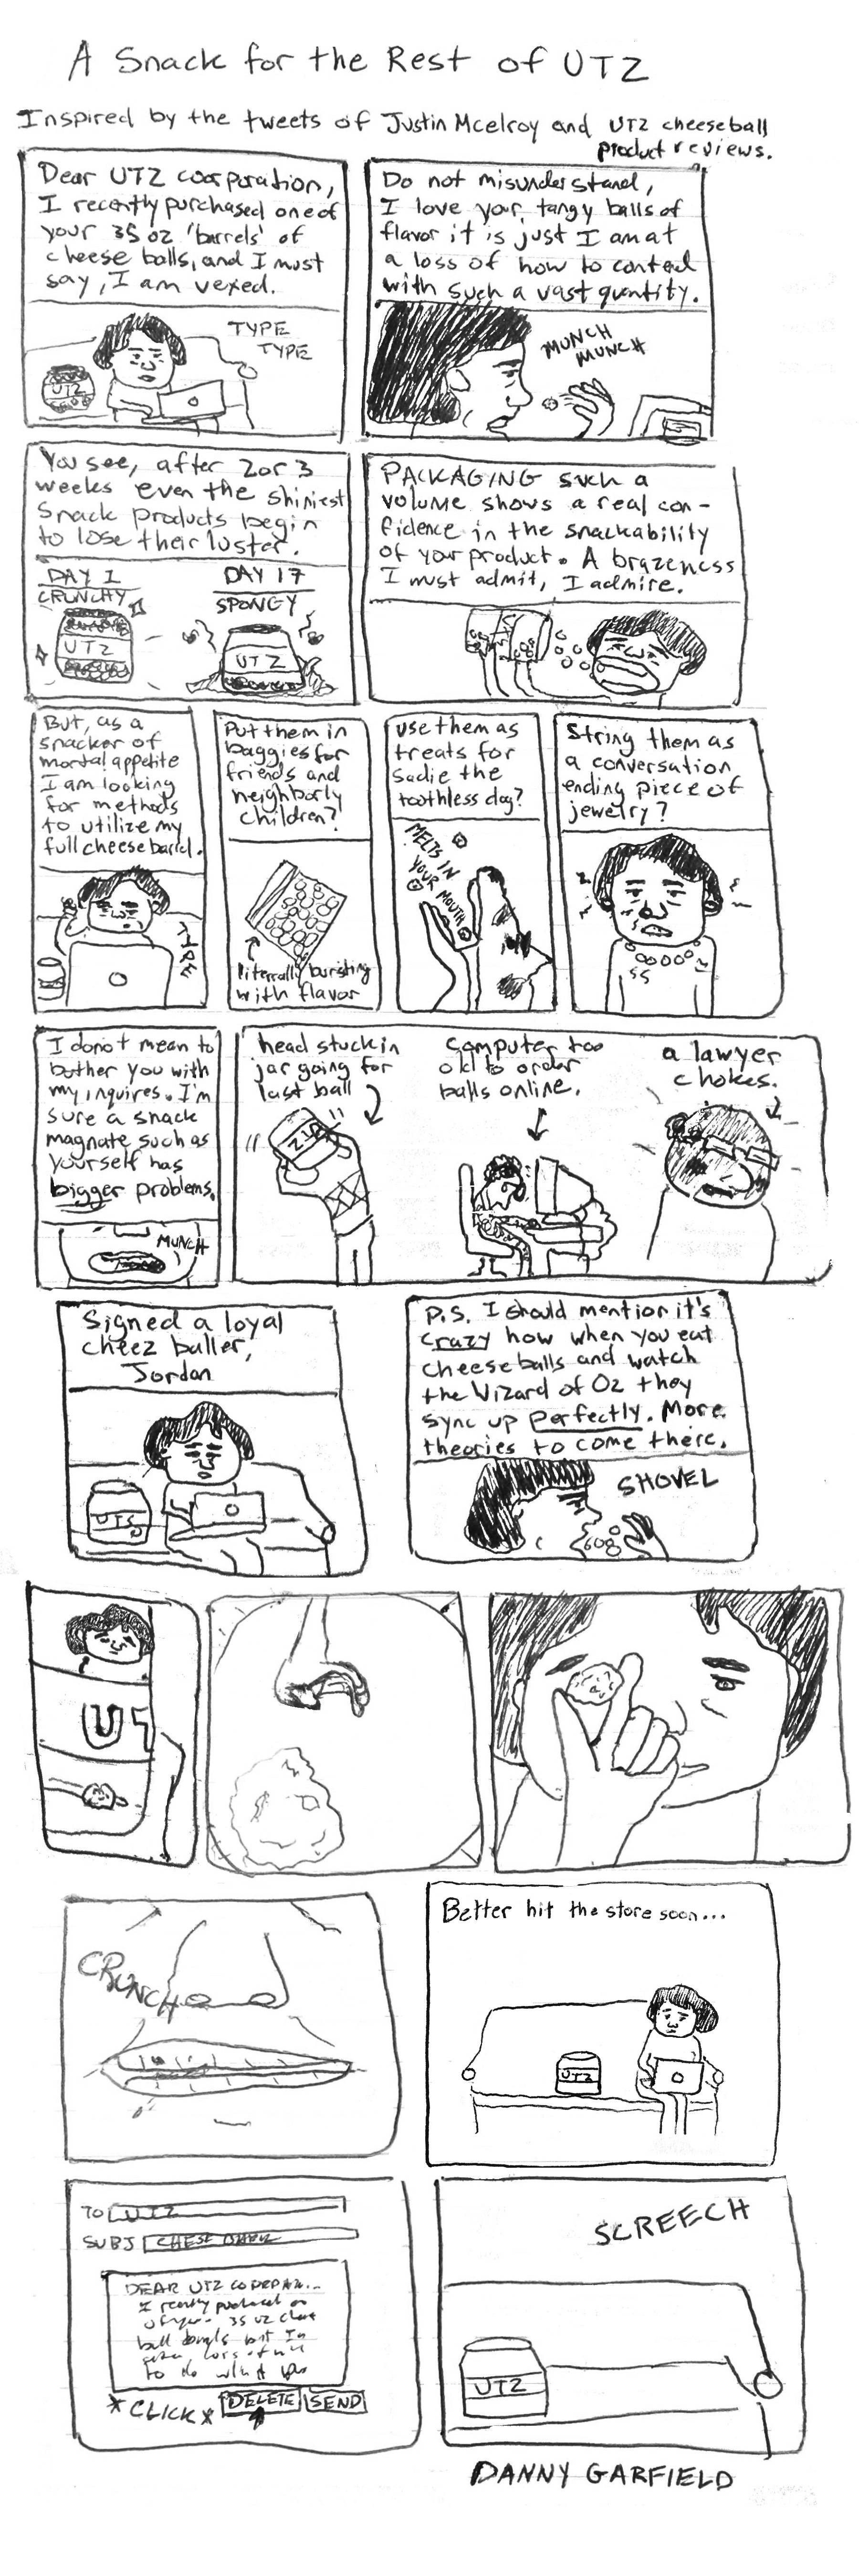 A Snack for the Rest of UTZ
Inspired by the tweets of Justin Mcelroy and UTZ cheeseball
product reviews.
Dear UTZ coorporation,
I recently purchased one of
your 35 oz 'barrels' of
cheese balls, and I must
say, I am vexed.
TYPE
TYPE
UTZ
Do not misunderstand,
I love your tangy balls of
flavor it is just I am at
a loss of how to contend
with such a vast quntity.
MUNCH
MUNCH
You see, after 2 or 3
weeks even the shiniest
snack products begin
to lose their luster.
DAY 1
CRUNCHY
UTZ
DAY 17
SPONGY
UTZ
PACKAGING such a
volume shows a real con-
fidence in the snackability
of your product. A brazeness
I must admit, I admire.
But, as a
snacker of
mortal appetite
I am looking
for methods
to utilize my
full cheese barrel.
Put them in
baggies for
friends and
neighborly
children?
literally bursting
with flavor
use them as
treats for
Sadie the
toothless dog?
MELTS IN
YOUR MOUTH
String them as
a conversation
ending piece of
jewelry?
I donot mean to
bother you with
my inquires. I'm
sure a snack
magnate such as
yourself has
bigger problems.
MUNCH
head stuck in
jar going for
last ball
UTZ
computer too
old to order
balls online.
a lawyer
chokes.
Signed a loyal
cheez baller,
Jordan
UTZ
P.S. I should mention it's
crazy how when you eat
cheese balls and watch
the Wizard of Oz they
sync up perfectly. More
theories to come there.
SHOVEL
UT
CRUNCH
Better hit the store soon...
UTZ
TO UTZ
SUBJ
DEAR UTZ
I recently purchased
35 oz
ball
to do
*CLICK* DELETE SEND
SCREECH
UTZ
DANNY GARFIELD